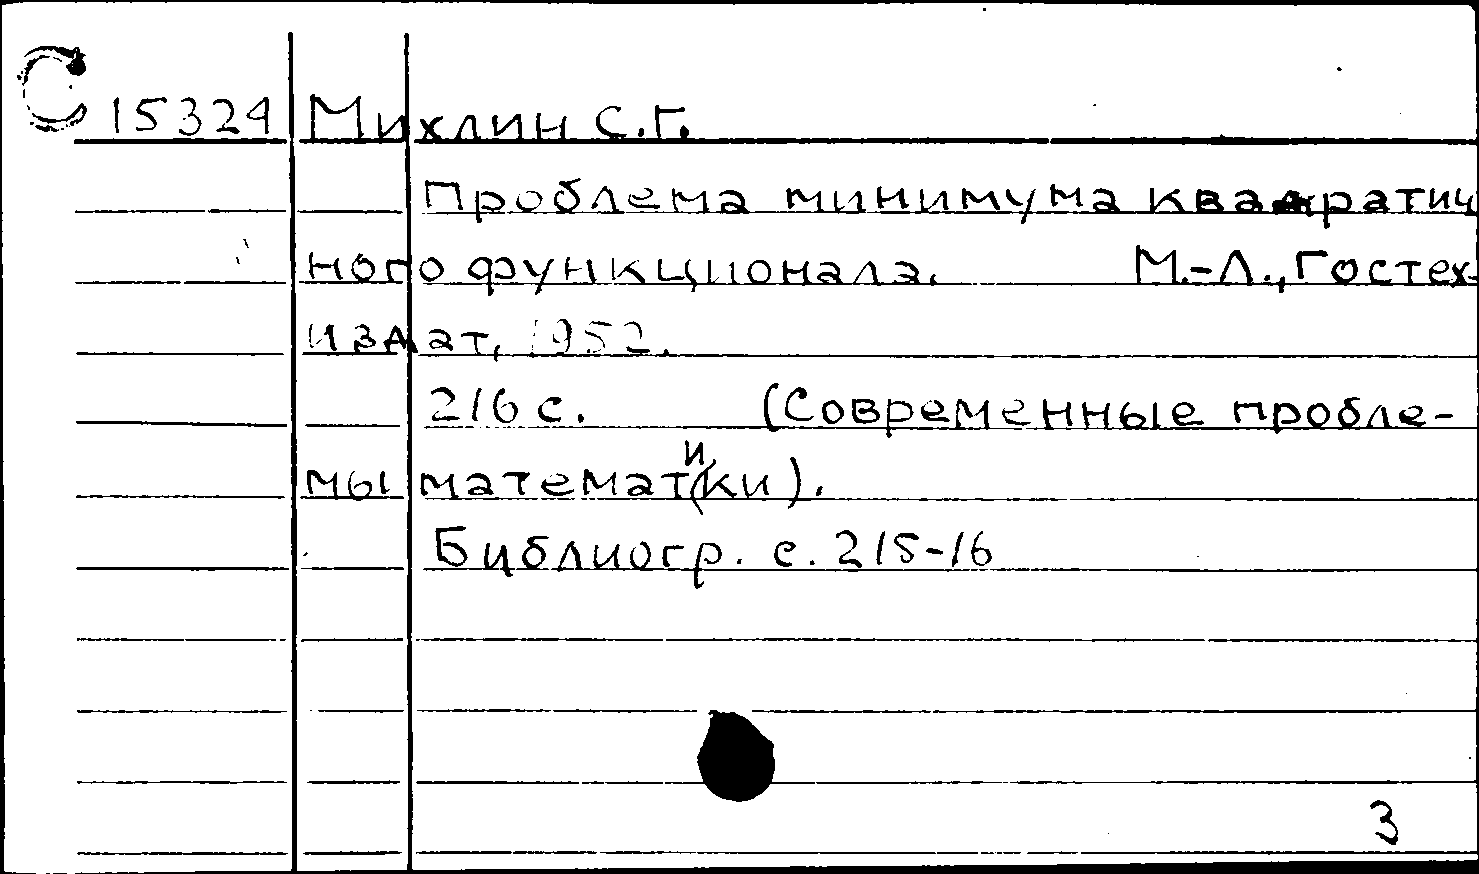 С 15324 Михлин С.Г.
Проблема минимума квадратич
ного функционала. М.-Л., Гостех-
издат, 1952.
216 с. (Современные пробле-
мы математики).
Библиогр. с. 215-16
3